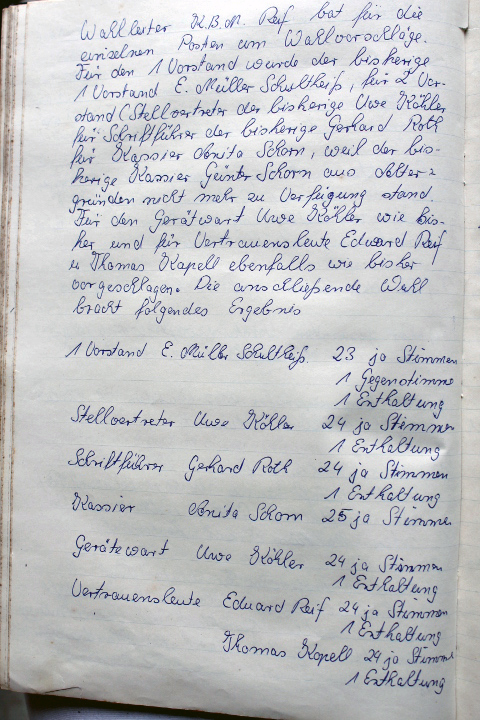 Wahlleiter K.B.M. Reif bat für die
einzelnen Posten um Wahlvorschläge.
Für den 1 Vorstand wurde der bisherige
1 Vorstand E. Müller Schultheiß, für 2 Vor-
stand (Stellvertreter der bisherige Uwe Köhler
für Schriftführer der bisherige Gerhard Roth
für Kassier Anita Schorn, weil der bis-
herige Kassier Günter Schorn aus Alter-
gründen nicht mehr zu Verfügung stand.
Für den Gerätwart Uwe Köhler wie bis-
her und für Vertrauensleute Eduard Reif
u Thomas Kapell ebenfalls wie bisher
vorgeschlagen. Die anschließende Wahl
bracht folgendes Ergebnis
1 Vorstand E. Müller Schultheiß. 23 ja Stimmen
1 Gegenstimme
1 Enthaltung
Stellvertreter Uwe Köhler 24 ja Stimmen
1 Enthaltung
Schriftführer Gerhard Roth 24 ja Stimmen
1 Enthaltung
Kassier Anita Schorn 25 ja Stimmen
Gerätewart Uwe Köhler 24 ja Stimmen
1 Enthaltung
Vertrauensleute Eduard Reif 24 ja Stimmen
1 Enthaltung
Thomas Kapell 24 ja Stimme
1 Enthaltung